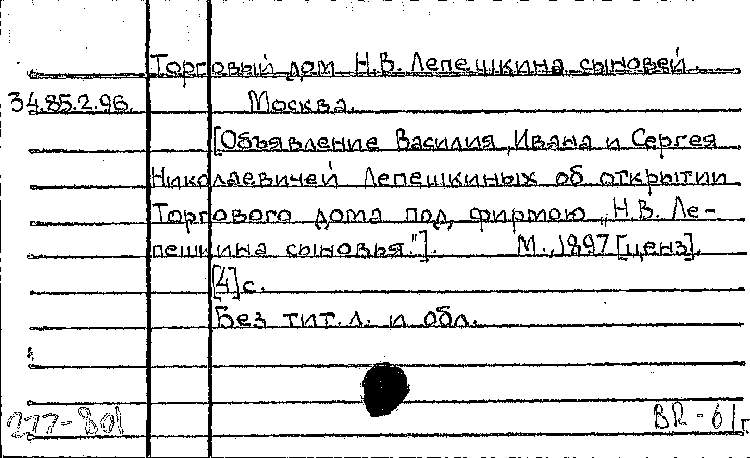 Торговый дом Н.В. Лепешкина сыновей.
34.85.2.96. Москва.
[Объявление Василия, Ивана и Сергея
Николаевичей Лепешкиных об открытии
Торгового дома под фирмою „Н.В. Ле-
пешкина сыновья."]. М., 1897 [ценз].
[4] с.
Без тит. л. и обл.
277-801 BR-61г